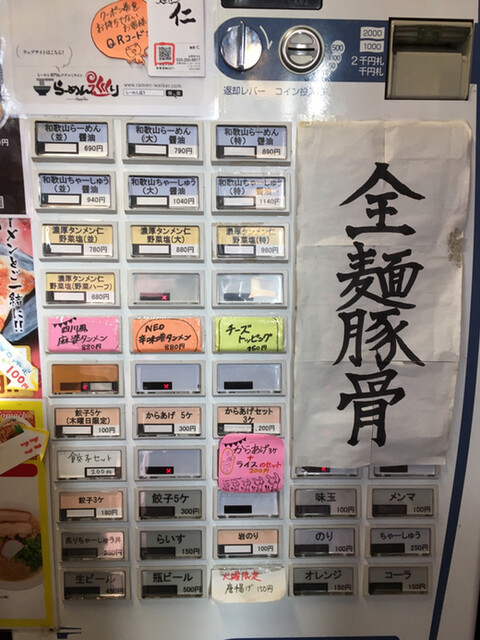 クーポン番号
お持ちでないお客様
QRコード
仁
マップサイトはこちら!
らーめん
www.ramen-walker.com
2000
1000
2千円札
千円札
500
100
50
10
返却レバー
コイン投入
和歌山らーめん
(並) 醤油
690円
和歌山らーめん
(大) 醤油
790円
和歌山らーめん
(特) 醤油
890円
和歌山ちゃーしゅう
(並) 醤油
940円
和歌山ちゃーしゅう
(大) 醤油
1040円
和歌山ちゃーしゅう
(特) 醤油
1140円
濃厚タンメン仁
野菜塩(並)
780円
濃厚タンメン仁
野菜塩(大)
880円
濃厚タンメン仁
野菜塩(特)
980円
濃厚タンメン仁
野菜塩(野菜ハーフ)
680円
四川風
麻婆タンメン
880円
NEO
辛味噌タンメン
880円
チーズ
トッピング
150円
餃子5ケ
(木曜日限定)
100円
からあげ 5ケ
300円
からあげセット
3ケ
200円
餃子セット
200円
からあげ3ケ
+
ライスのセット
200円
餃子3ケ
180円
餃子5ケ
300円
味玉
100円
メンマ
100円
炙りちゃーしゅう丼
らいす
150円
岩のり
100円
のり
100円
ちゃーしゅう
250円
生ビール
瓶ビール
500円
火曜限定
唐揚げ 100円
オレンジ
150円
コーラ
150円
全麺豚骨
メンとご一緒に!!
100円